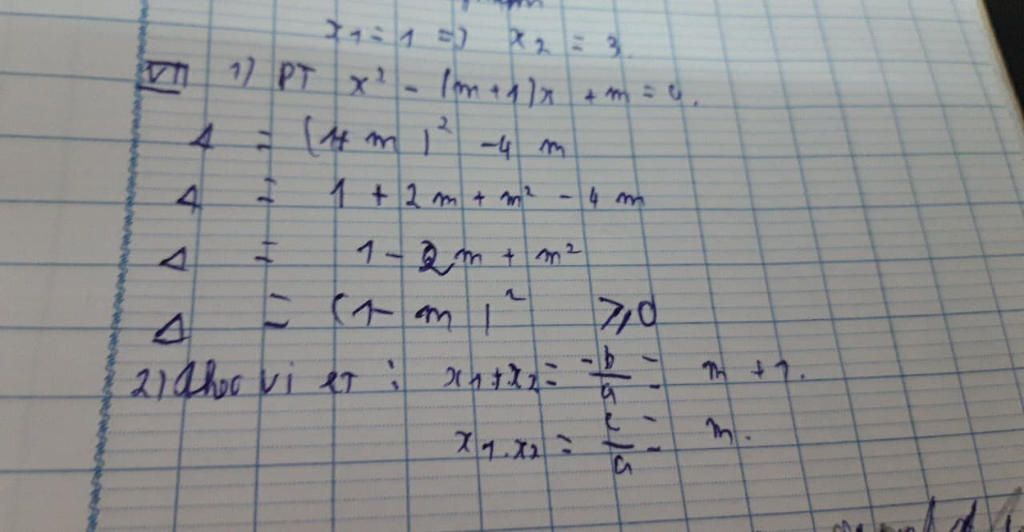 x1 = 1 => x2 = 3.
VI 1) PT x² - (m+1)x + m = 0.
Δ = (1+m)² - 4m
Δ = 1 + 2m + m² - 4m
Δ = 1 - 2m + m²
Δ = (1 - m)² ⩾ 0
2) theo vi et : x1 + x2 = -b/a = m + 1.
x1.x2 = c/a = m.